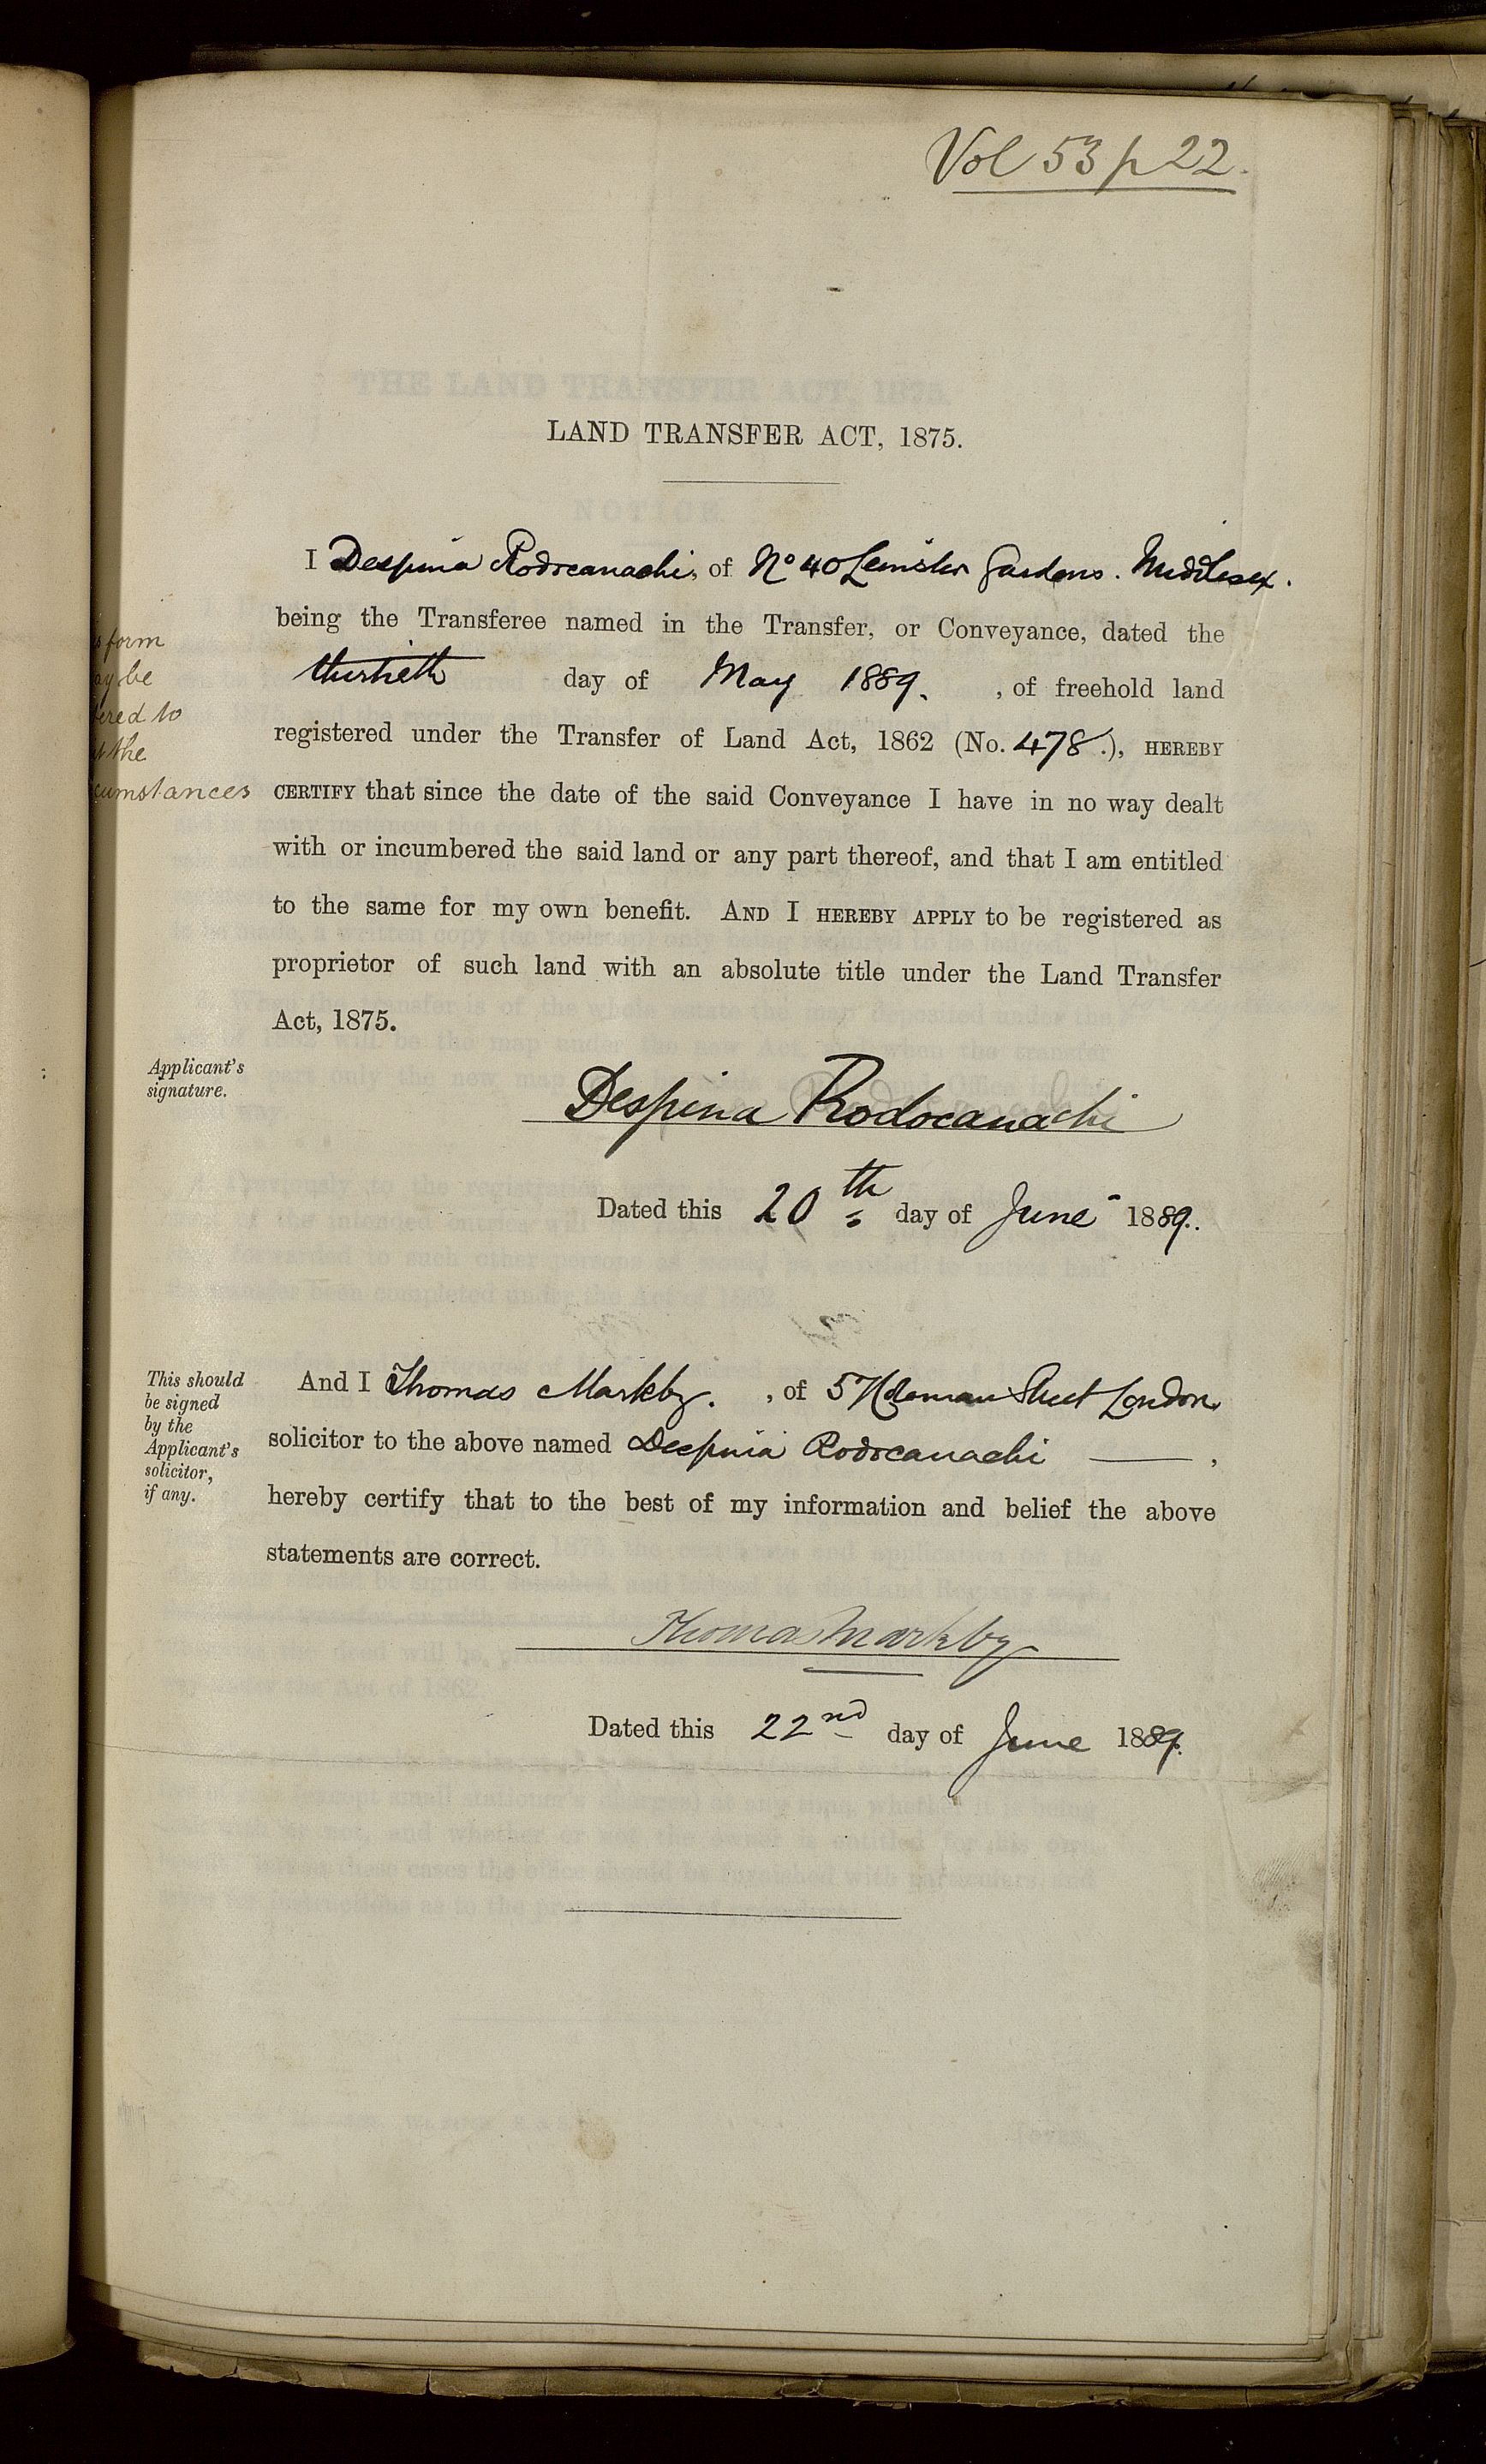 Vol 53 p 22.
LAND TRANSFER ACT, 1875.
I Despina Rodocanachi, of No 40 Leinster Gardens. Middlesex.
being the Transferee named in the Transfer, or Conveyance, dated the
thirtieth day of May 1889. , of freehold land
registered under the Transfer of Land Act, 1862 (No. 478.), HEREBY
CERTIFY that since the date of the said Conveyance I have in no way dealt
with or incumbered the said land or any part thereof, and that I am entitled
to the same for my own benefit. AND I HEREBY APPLY to be registered as
proprietor of such land with an absolute title under the Land Transfer
Act, 1875.
form
be
to
the
Applicant's
signature.
Despina Rodocanachi
Dated this 20th day of June 1889.
This should
be signed
by the
Applicant's
solicitor,
if any.
And I Thomas Markby. , of 57 Coleman Street London,
solicitor to the above named Despina Rodocanachi ,
hereby certify that to the best of my information and belief the above
statements are correct.
Thomas Markby
Dated this 22nd day of June 1889.